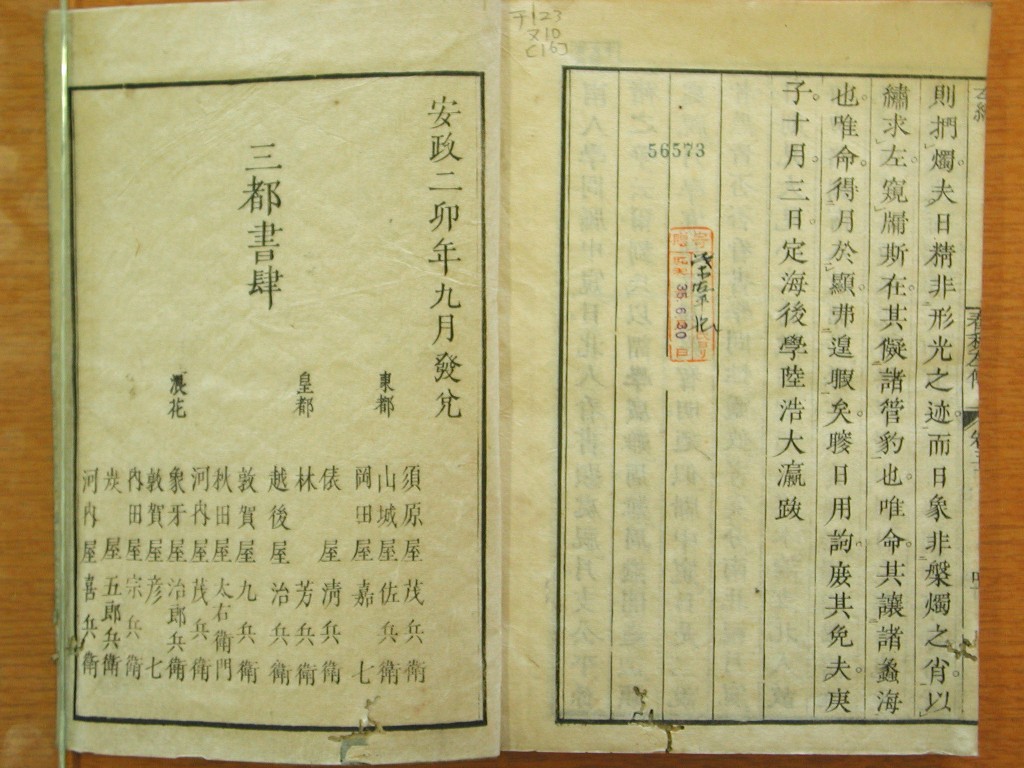 則捫燭夫日精非形光之迹而日象非槃燭之肖以
繡求左窺牖斯在其儗諸管豹也唯命其讓諸蠡海
也唯命得月於顯弗遑暇矣賸日用詢庶其免夫庚
子十月三日定海後學陸浩大瀛跋
56573
35 6 30
安政二卯年九月發兌
三都書肆
東都
須原屋茂兵衛
山城屋佐兵衛
岡田屋嘉七
皇都
俵屋清兵衛
林芳兵衛
越後屋治兵衛
敦賀屋九兵衛
浪花
秋田屋太右衛門
河内屋茂兵衛
象牙屋治郎兵衛
敦賀屋彦七
内田屋宗兵衛
炭屋五郎兵衛
河内屋喜兵衛